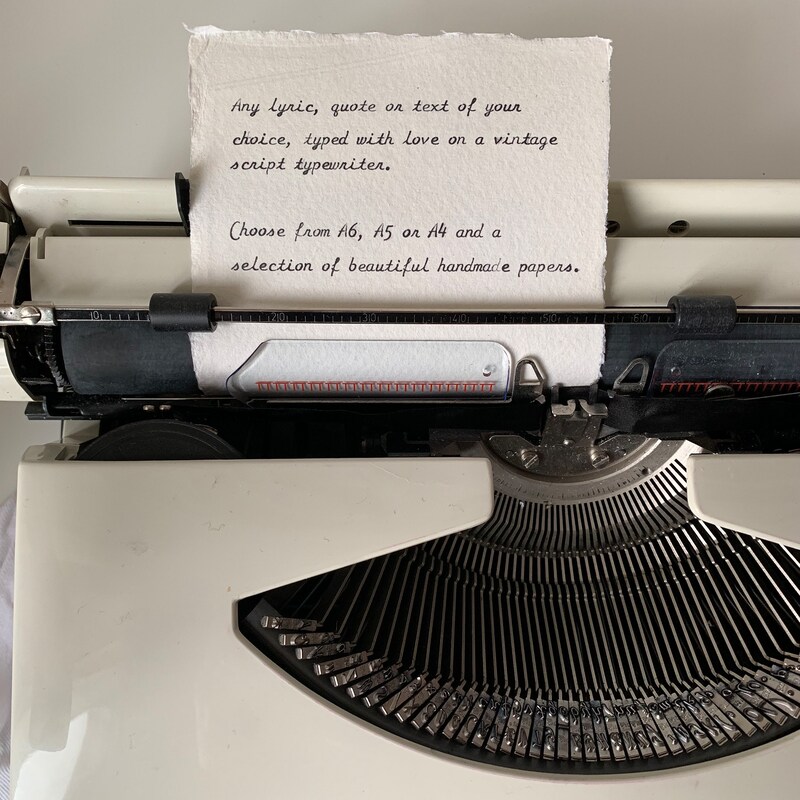 Any lyric, quote or text of your
choice, typed with love on a vintage
script typewriter.
Choose from A6, A5 or A4 and a
selection of beautiful handmade papers.
10 20 30 40 50 60